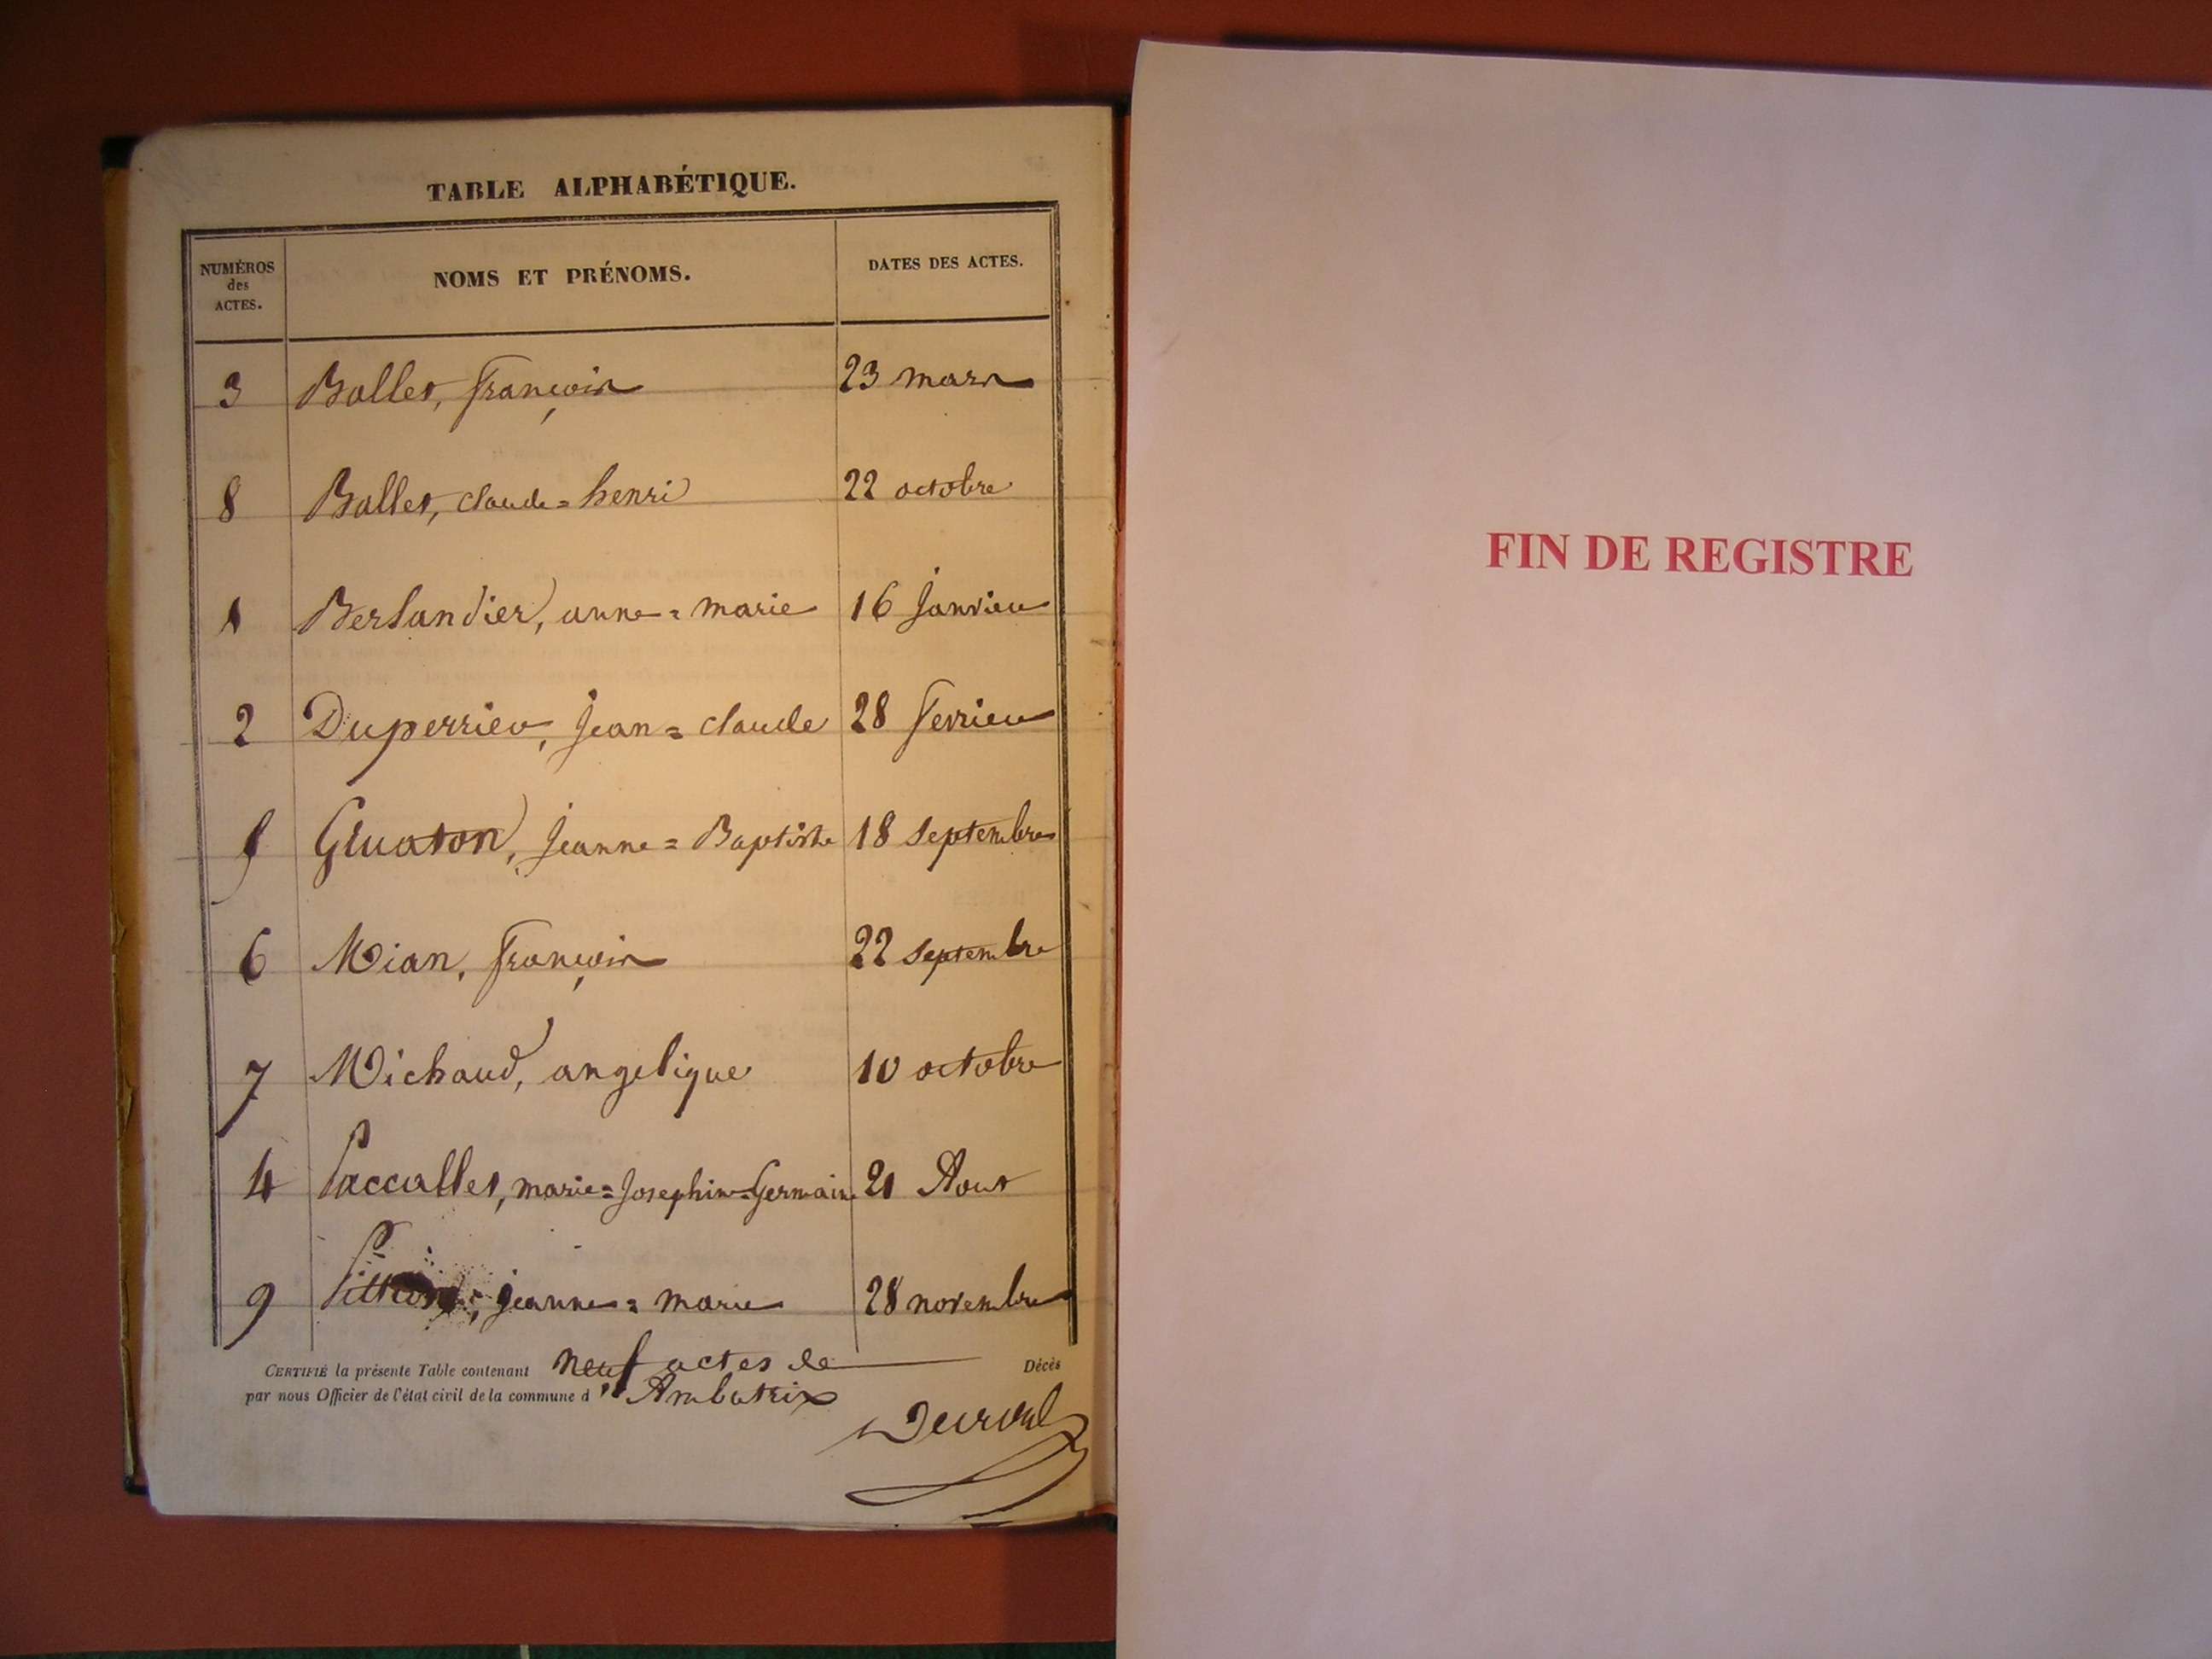 TABLE ALPHABÉTIQUE.
NUMÉROS des ACTES. NOMS ET PRÉNOMS. DATES DES ACTES.
3 Ballet, françois 23 mars
8 Ballet, claude=henri 22 octobre
1 Berlandier, anne=marie 16 Janvier
2 Duperrier, Jean=claude 28 fevrier
5 Gluaton, Jeanne=Baptiste 18 septembre
6 Mian, françois 22 septembre
7 Michaud, angelique 10 octobre
4 Paccallet, marie=Josephine=Germaine 21 Aout
9 jeanne=marie 28 novembre
CERTIFIÉ la présente Table contenant neuf actes de Décès
par nous Officier de l'état civil de la commune d'Ambutrix
FIN DE REGISTRE